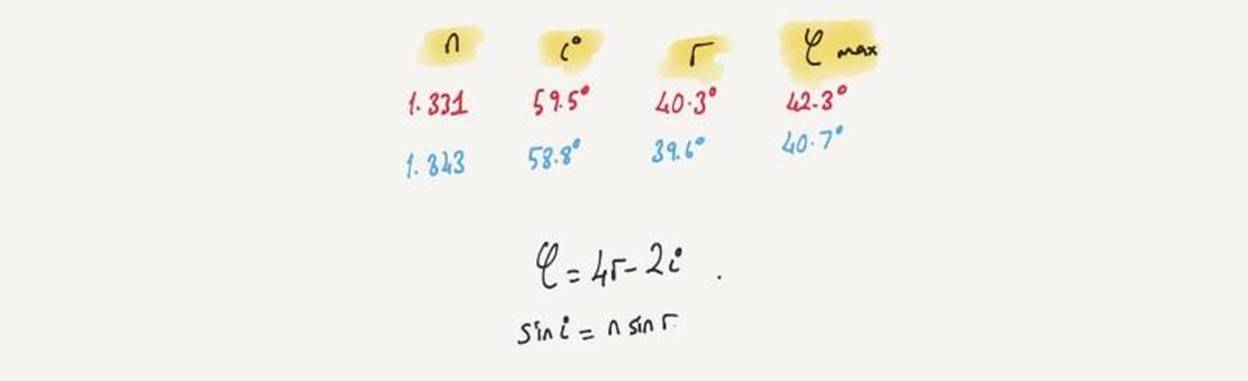 n i° r φ max
1.331 59.5° 40.3° 42.3°
1.343 58.8° 39.6° 40.7°
φ = 4r - 2i .
sin i = n sin r